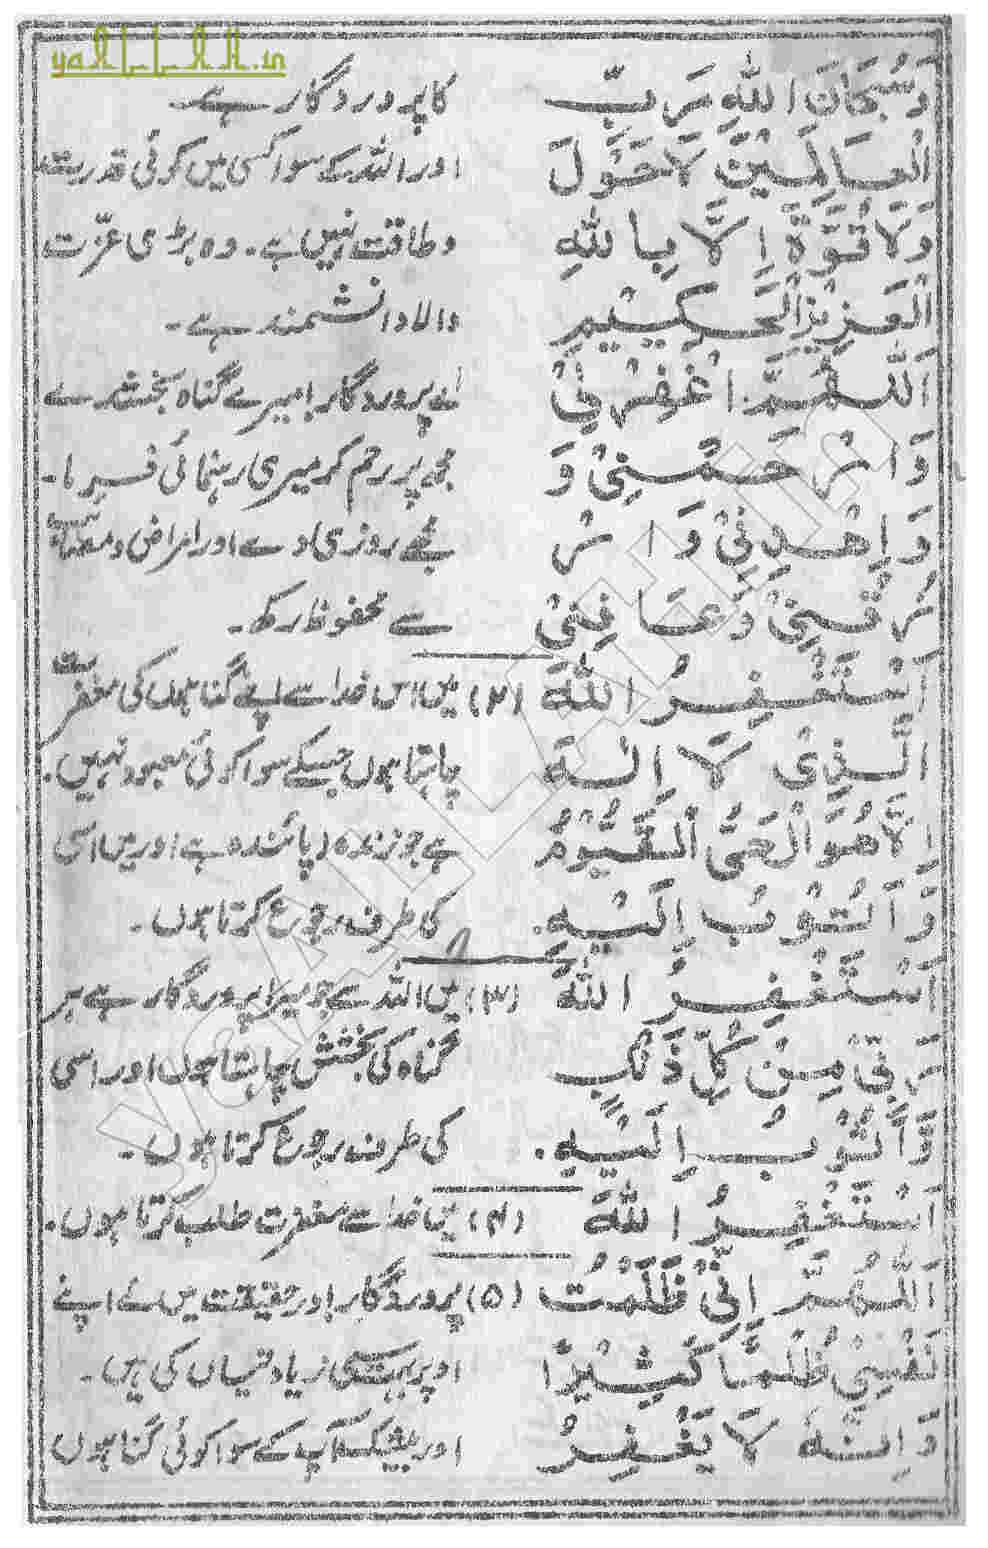 yaALLAH.in
وَسُبْحَانَ اللّٰهِ رَبِّ کا پروردگار ہے۔
الْعَالَمِيْنَ لَا حَوْلَ اور اللہ کے سوا کسی میں کوئی قدرت
وَلَا قُوَّةَ اِلَّا بِاللّٰهِ و طاقت نہیں ہے۔ وہ بڑی عزّت
الْعَزِيْزِ الْحَكِيْمِ والا دانشمند ہے۔
اَللّٰهُمَّ اغْفِرْ لِيْ اے پروردگار! میرے گناہ بخشدے
وَارْحَمْنِيْ وَ مجھ پر رحم کر میری رہنمائی فرما۔
وَاهْدِنِيْ وَارْ مجھے روزی دے اور امراض و مصائب
زُقْنِيْ وَعَافِنِيْ سے محفوظ رکھ۔
اَسْتَغْفِرُ اللّٰهَ (۲) میں اس خدا سے اپنے گناہوں کی مغفرت
الَّذِيْ لَا اِلٰهَ چاہتا ہوں جسکے سوا کوئی معبود نہیں۔
اِلَّا هُوَ الْحَيُّ الْقَيُّوْمُ ہے جو زندہ (پائندہ ہے) اور میں اسی
وَاَتُوْبُ اِلَيْهِ۔ کی طرف رجوع کرتا ہوں۔
اَسْتَغْفِرُ اللّٰهَ (۳) میں اللہ سے جو میرا پروردگار ہے ہر
رَبِّيْ مِنْ كُلِّ ذَنْبٍ گناہ کی بخشش چاہتا ہوں اور اسی
وَّاَتُوْبُ اِلَيْهِ۔ کی طرف رجوع کرتا ہوں۔
اَسْتَغْفِرُ اللّٰهَ (۴) میں خدا سے مغفرت طلب کرتا ہوں۔
اَللّٰهُمَّ اِنِّيْ ظَلَمْتُ (۵) پروردگار! در حقیقت میں نے اپنے
نَفْسِيْ ظُلْمًا كَثِيْرًا اوپر بہت سی زیادتیاں کی ہیں۔
وَاِنَّهٗ لَا يَغْفِرُ اور بیشک آپ کے سوا کوئی گناہوں